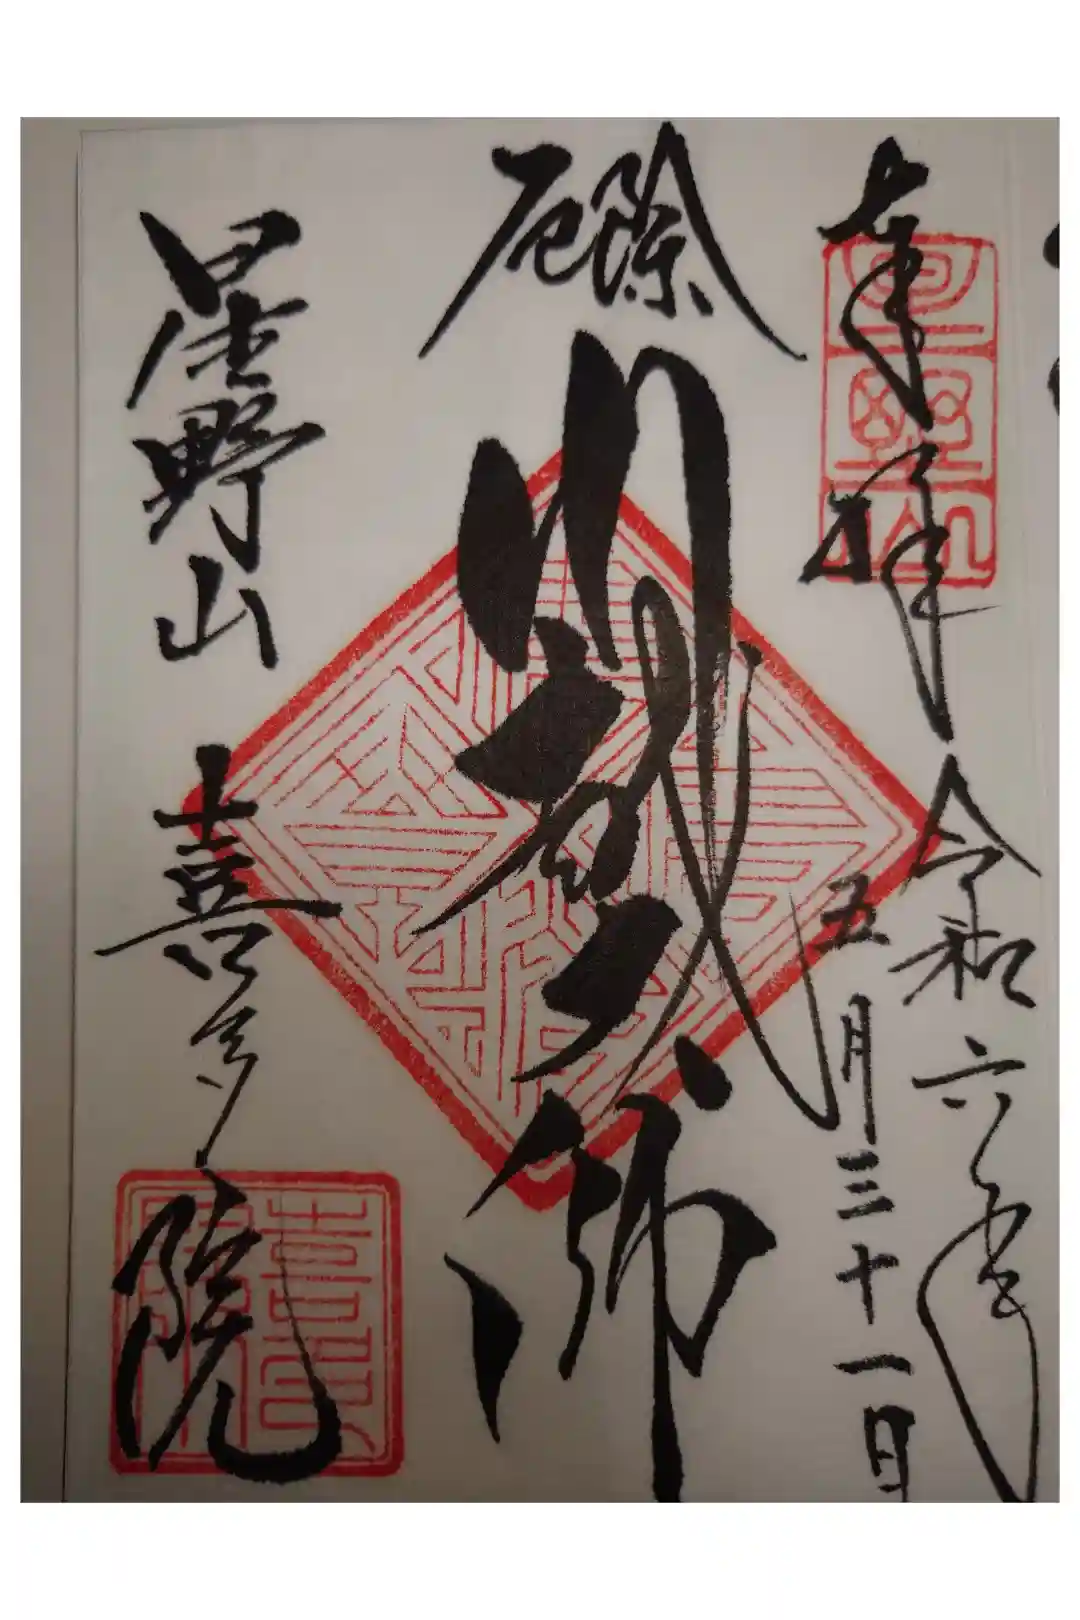 奉拝
星野山
令和六年
五月三十一日
厄除
川越大師
星野山
喜多院